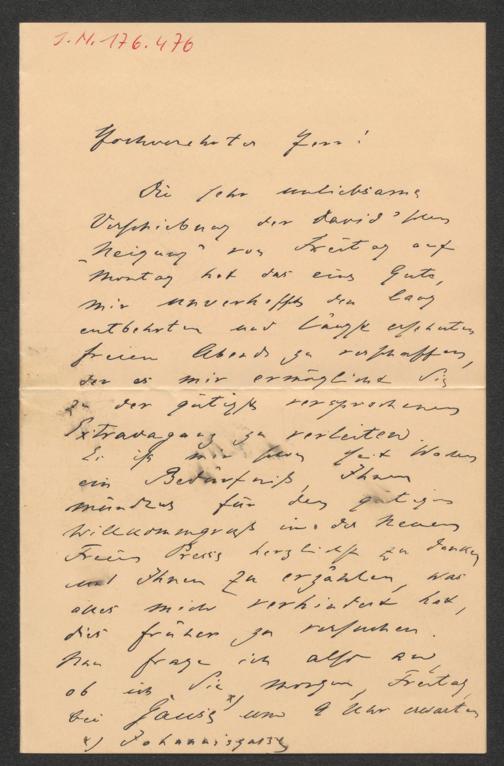 J.N. 176.476
Hochverehrter Herr!
Die sehr unliebsame
Verschiebung der David'schen
„Neigung" von Freitag auf
Montag hat das eine Gute,
mir unverhofft den lang
entbehrten und längst ersehnten
freien Abend zu verschaffen,
der es mir ermöglicht Sie
zu der gütigst versprochenen
Extravaganz zu verleiten.
Es ist mir schon seit Wochen
ein Bedürfniß, Ihnen
mündlich für den gütigen
Willkommengruß in der Neuen
Freien Presse herzlichst zu danken
und Ihnen zu erzählen, was
alles mich verhindert hat,
dies früher zu versuchen.
Nun frage ich also an,
ob ich Sie morgen, Freitag,
bei Gause *) um 9 Uhr erwarten
*) Johannisgasse